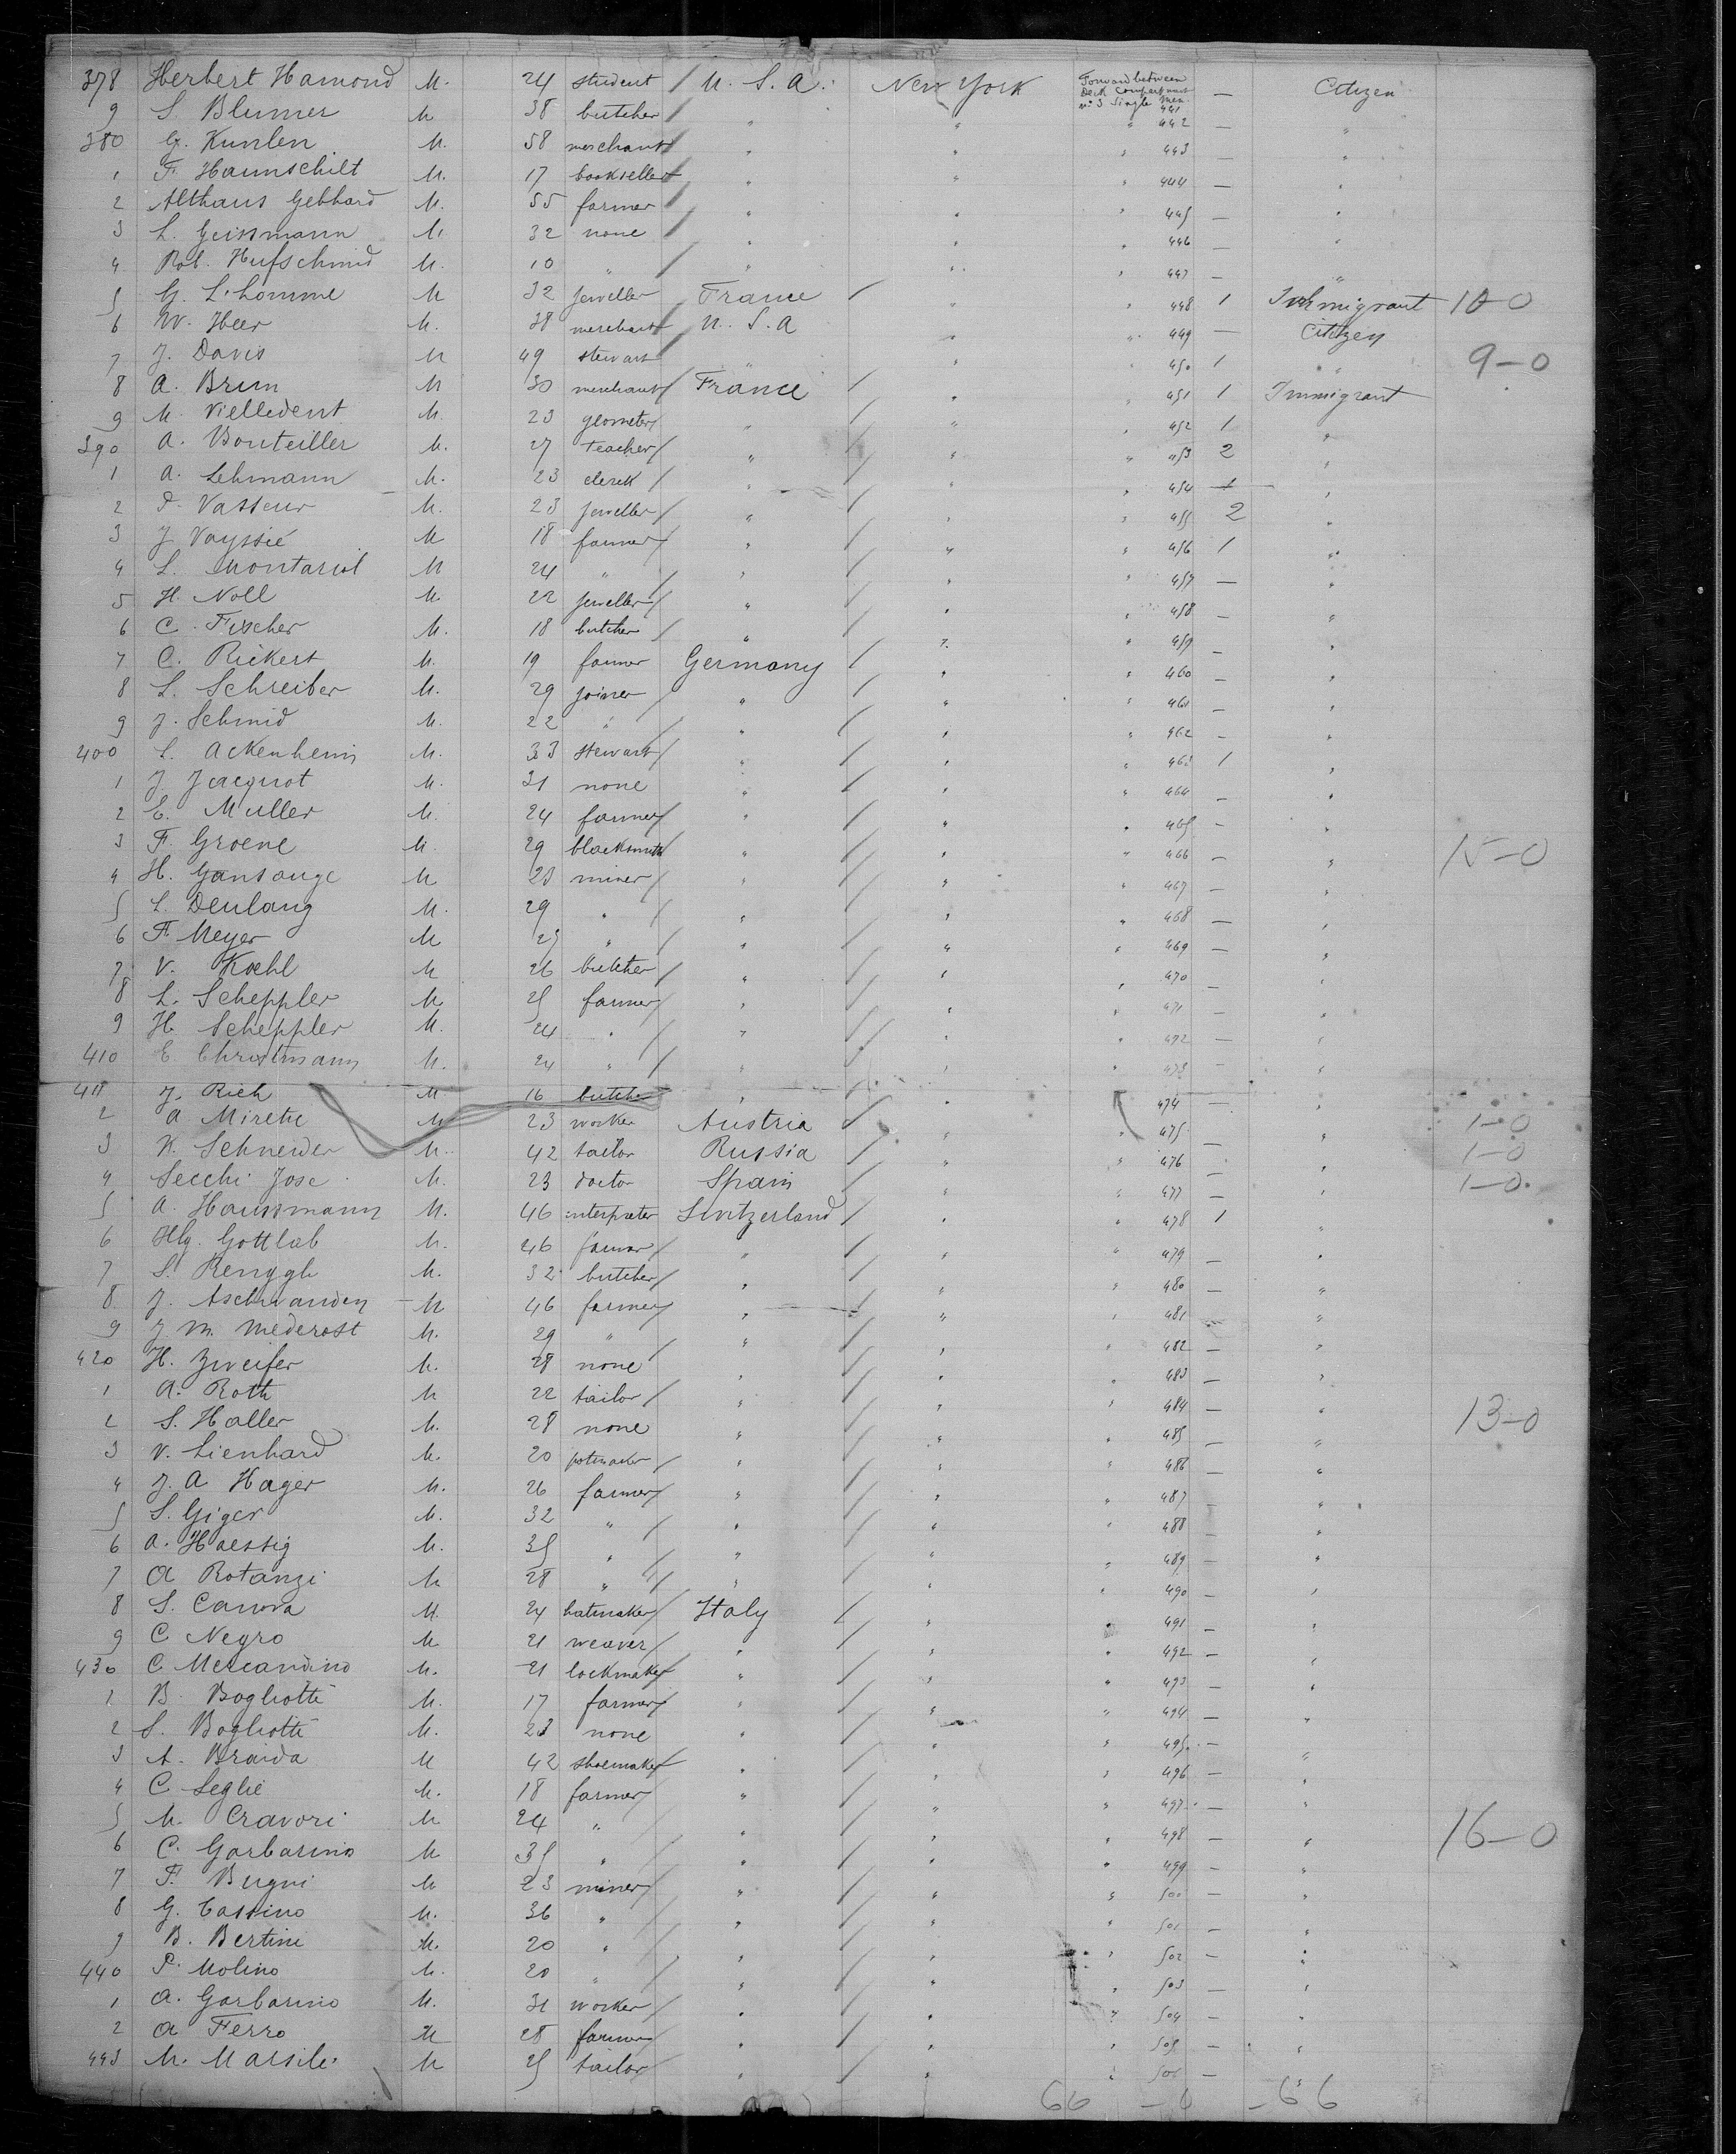 378 Herbert Hamond M. 24 student / U. S. A. New York Forward between Deck Compartment No 3 Single Men 441 — Citizen
9 S. Blumer M 38 butcher / " " " 442 — "
380 G. Kunlen M. 58 merchant / " " " 443 — "
1 F. Haunschilt M. 17 bookseller / " " " 444 — "
2 Althaus Gebhard M. 55 farmer / " " " 445 — "
3 L. Geissmann M. 32 none / " " " 446 — "
4 Rob. Hufschmid M. 10 " / " " " 447 — "
5 G. L'homme M 32 jeweller France / " " 448 1 Immigrant 10-0
6 W. Heer M. 38 merchant U. S. A " " 449 — Citizen
7 J. Davis M 49 stewart / " " " 450 1 " 9-0
8 A. Brun M 30 merchant / France / " " 451 1 Immigrant
9 M. Vielledent M. 23 geometer / " / " " 452 1 "
390 A. Bouteiller M. 27 teacher / " / " " 453 2 "
1 A. Lehmann M. 23 clerk / " / " " 454 1 "
2 P. Vasseur M. 23 jeweller / " / " " 455 2 "
3 J Vayssié M 18 farmer / " / " " 456 1 "
4 L. Montariol M 24 " / " / " " 457 — "
5 H. Noll M. 22 jeweller / " / " " 458 — "
6 C. Fischer M. 18 butcher / " / " " 459 — "
7 C. Rickert M. 19 farmer Germany / " " 460 — "
8 L. Schreiber M. 29 joiner / " / " " 461 — "
9 J. Schmid M. 22 " / " / " " 462 — "
400 L. Ackenheim M. 33 stewart / " / " " 463 1 "
1 J Jacquot M. 31 none " / " " 464 — "
2 E. Muller M. 24 farmer / " / " " 465 — "
3 F. Groene M. 29 blacksmith " / " " 466 — " 15-0
4 H. Gansauge M 23 miner / " / " " 467 — "
5 L. Deulang M. 29 " / " / " " 468 — "
6 F. Meyer M 25 " / " / " " 469 — "
7 V. Koehl M 26 butcher / " / " " 470 — "
8 L. Scheppler M 25 farmer / " / " " 471 — "
9 H. Scheppler M. 24 " / " / " " 472 — "
410 E Christmann M. 24 " / " / " " 473 — "
411 J. Rich M 16 butcher " / " 474 — "
2 A Mirethe M 23 worker Austria / " " 475 — " 1-0
3 K. Schneider M. 42 tailor Russia / " " 476 — " 1-0
4 Secchi Jose M. 23 doctor Spain / " " 477 — " 1-0
5 A. Haussmann M. 46 interpreter Switzerland / " " 478 1 "
6 Hg. Gottlieb M. 26 farmer / " / " " 479 — "
7 S. Renggli M. 32 butcher / " / " " 480 — "
8 J. Aschwanden M 46 farmer / " / " " 481 — "
9 J. M. Mederost M. 29 " / " / " " 482 — "
420 H. Zweifer M. 28 none " / " " 483 — "
1 A. Roth M 22 tailor / " / " " 484 — " 13-0
2 S. Haller M. 28 none " / " " 485 — "
3 V. Lienhard M. 20 / " / " " 486 — "
4 J. A Hager M. 26 farmer / " / " " 487 — "
5 S. Giger M. 32 " / " / " " 488 — "
6 A. Haessig M. 35 " / " / " " 489 — "
7 A Rotanzi M 28 " / " / " " 490 — "
8 S. Canova M. 24 hatmaker / Italy / " " 491 — "
9 C Negro M 21 weaver / " / " " 492 — "
430 C. Mercandino M. 21 lockmaker " / " " 493 — "
1 B. Bogliotti M. 17 farmer / " / " " 494 — "
2 S. Bogliotti M. 23 none " / " " 495 — "
3 A. Braida M 42 shoemaker " / " " 496 — "
4 C Leglie M. 18 farmer / " / " " 497 — "
5 M. Cravori M 24 " / " / " " 498 — " 16-0
6 C. Garbarino M 35 " / " / " " 499 — "
7 F. Bugni M 23 miner / " / " " 500 — "
8 G. Cassino M. 36 " / " / " " 501 — "
9 B. Bertini M. 20 " / " / " " 502 — "
440 P. Molino M. 20 " / " / " " 503 — "
1 A. Garbarino M. 31 worker / " / " " 504 — "
2 A Ferro M 28 farmer / " / " " 505 — "
443 M. Marsili M 25 tailor / " / " " 506 — "
66 - 0 - 66